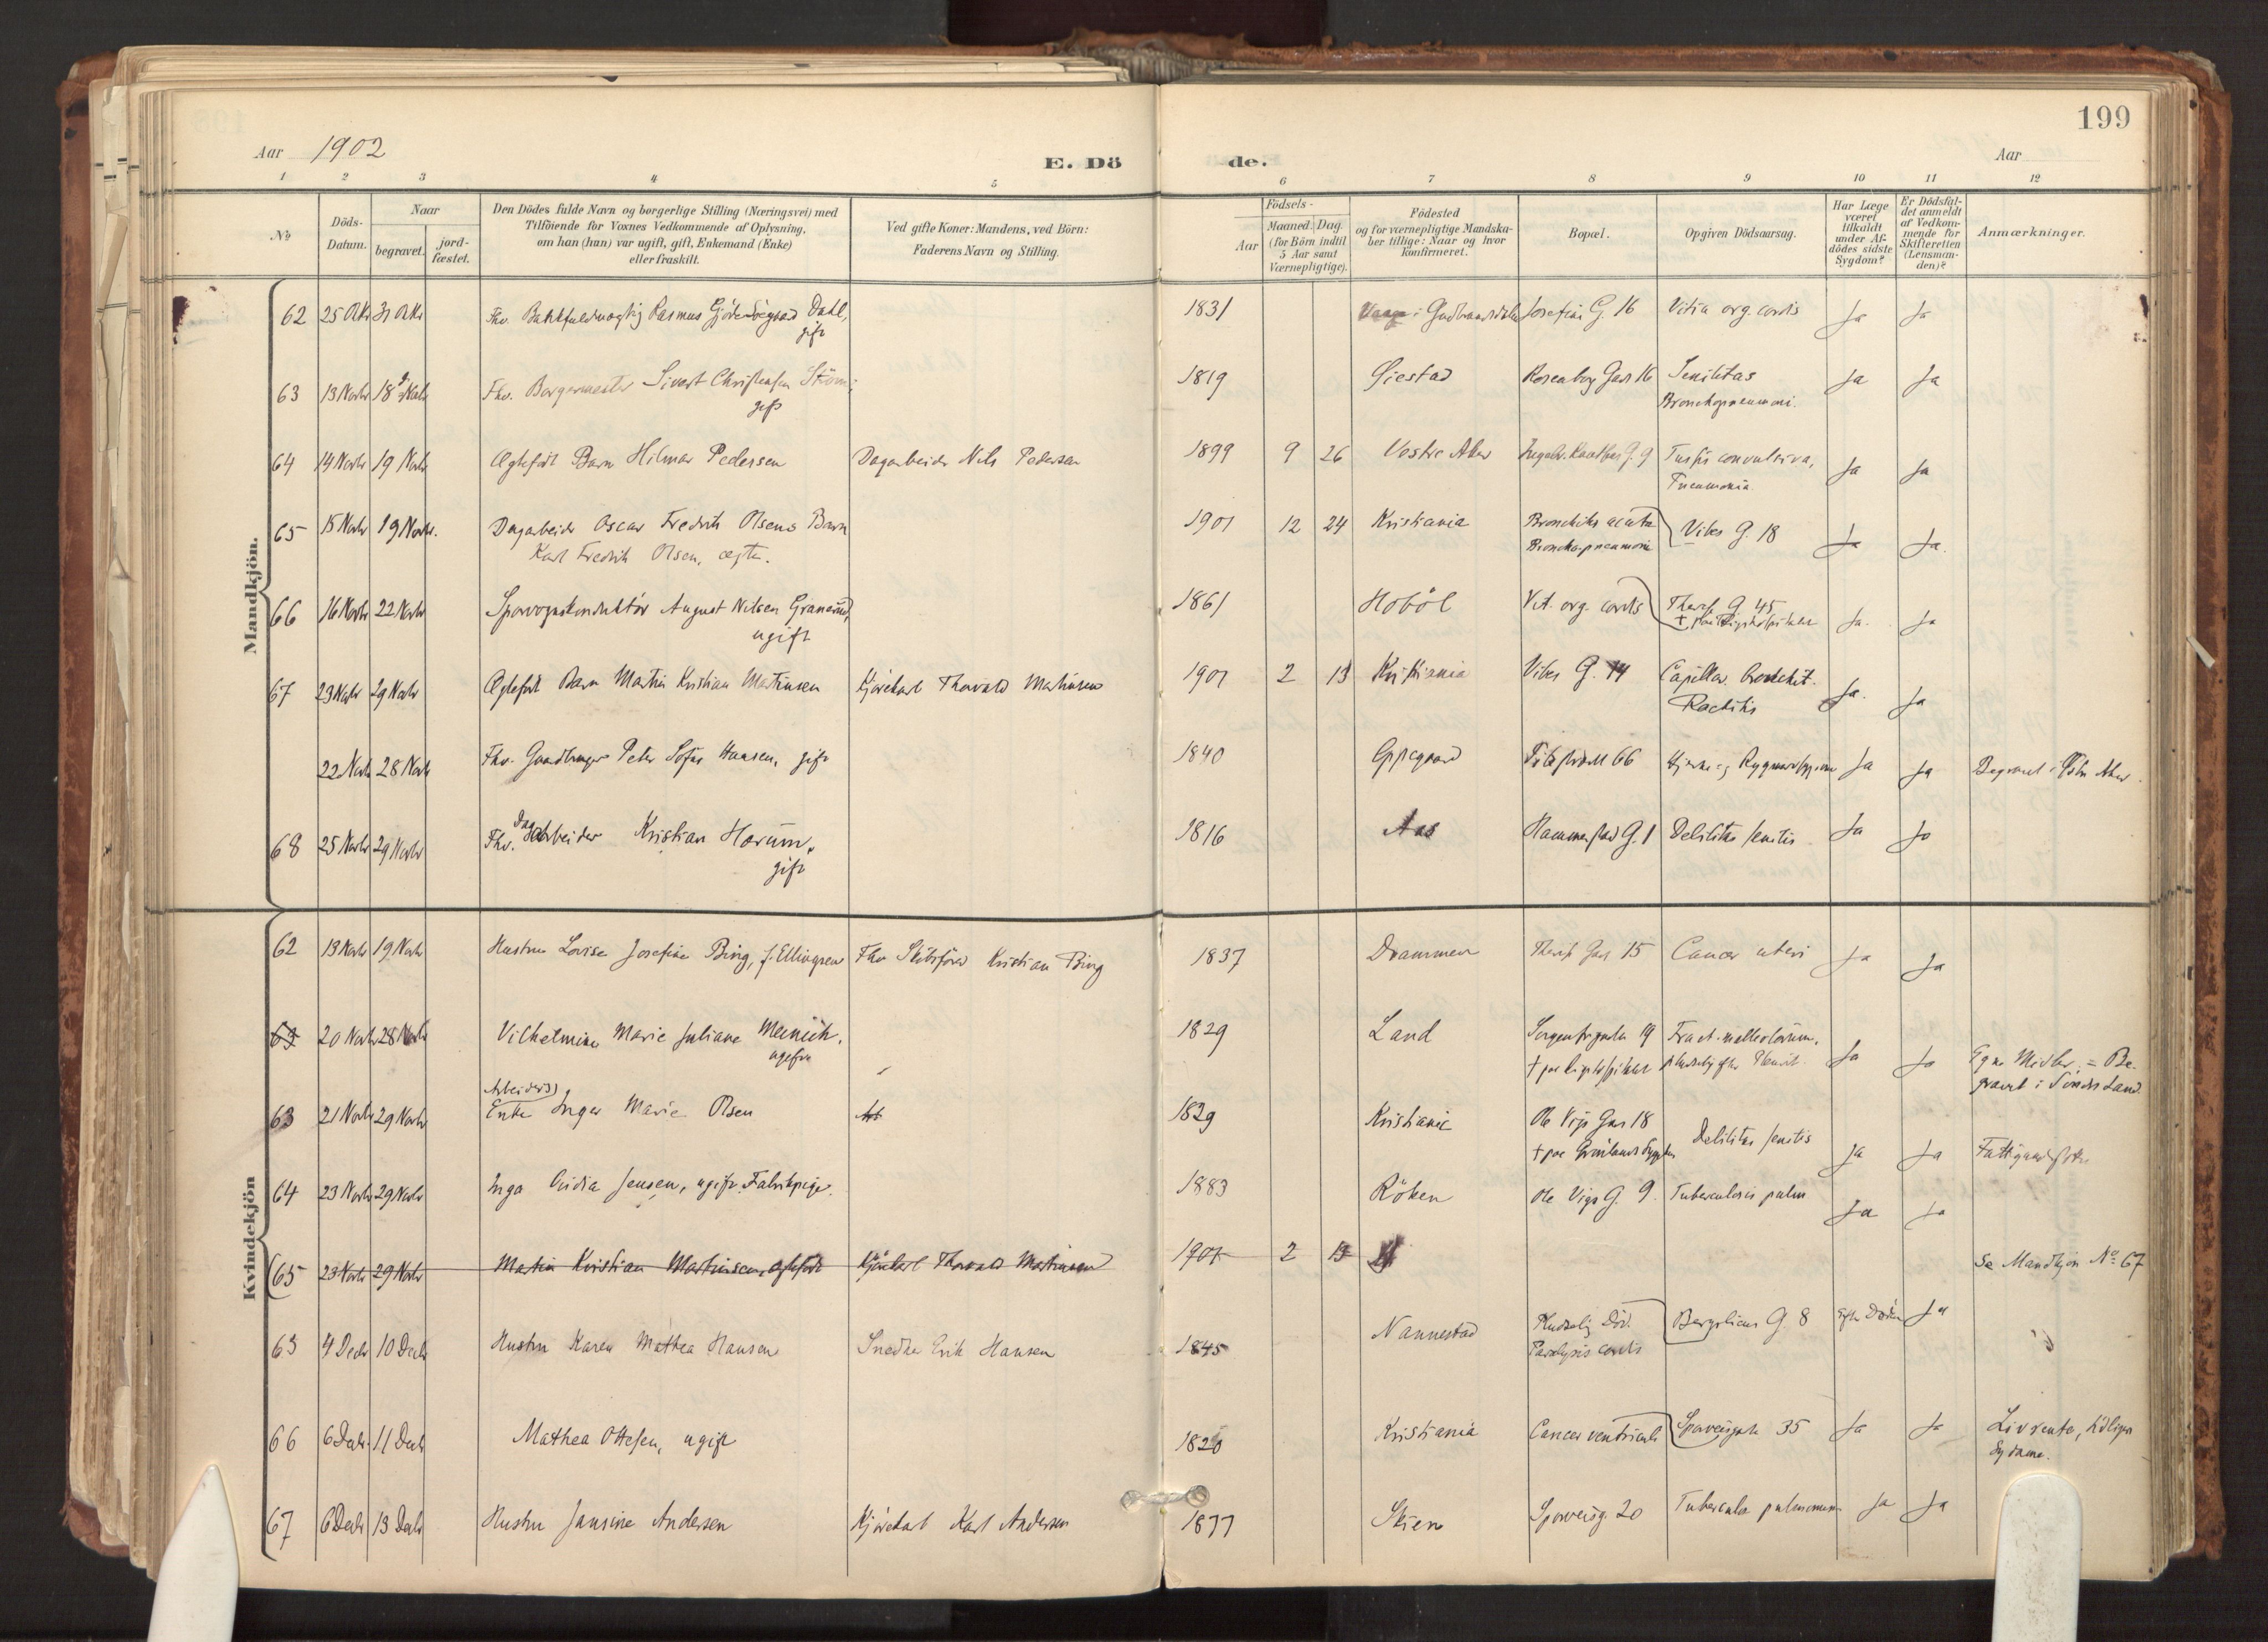 199
Aar 1902
E. Dö
de.
Aar
1 2 3 4 5 6 7 8 9 10 11 12
No
Döds-
Datum.
Naar
begravet.
jord-
fæstet.
Den Dödes fulde Navn og borgerlige Stilling (Næringsvei) med
Tilföiende for Voxnes Vedkommende af Oplysning,
om han (hun) var ugift, gift, Enkemand (Enke)
eller fraskilt.
Ved gifte Koner: Mandens, ved Börn:
Faderens Navn og Stilling.
Födsels-
Aar
Maaned. Dag.
(for Börn indtil
5 Aar samt
Værnepligtige).
Födested
og for værnepligtige Mandska-
ber tillige: Naar og hvor
konfirmeret.
Bopæl.
Opgiven Dödsaarsag.
Har Læge
været
tilkaldt
under Af-
dödes sidste
Sygdom?
Er Dödsfal-
det anmeldt
af Vedkom-
mende for
Skifteretten
(Lensman-
den)?
Anmærkninger.
Mandkjön.
62 25 Okt 31 Okt Fhv. Rasmus Dahl, 1831 Gudbrandsdalen Josefines G. 16 Vitia org. cordis Ja Ja
gift
63 13 Novbr 18 Novbr Fhv. Borgermester Sivert Christensen Ström 1819 Öiestad Rosenborg Gad 16 Senilitas Ja Ja
gift
Bronchopneumoni.
64 14 Novbr 19 Novbr Ægtefödt Barn Hilmar Pedersen Dagarbeider Nils Pedersen 1899 9 26 Vestre Aker G. 9 Tussis convulsiva, Ja Ja
Pneumonia
65 15 Novbr 19 Novbr. Dagarbeider Oscar Fredrik Olsens Barn 1901 12 24 Kristiania Bronchitis acuta Vibes G. 18 Ja Ja.
Karl Fredrik Olsen, ægte.
Bronchopneumoni
66 16 Novbr 22 Novbr Sporvognskonduktör August Nilsen Granerud, 1861 Hoböl Vit. org. cordis Theres G. 45 Ja. Ja
ugift
+ paa Rigshospitalet
67 23 Novbr 29 Novbr Ægtefödt Barn Martin Kristian Martinsen Kjörekarl Thorvald Martinsen 1901 2 13 Kristiania Vibes G. 14 Capillar bronchit. Ja. Ja
Rachitis
22 Novbr 28 Novbr Fhv. Gaardbruger Peter Sofus Hansen, gift 1840 Oppegaard Pilestrædet 66 Ja Ja Begravet i Östre Aker.
68 25 Novbr 29 Novbr Fhv. Dagarbeider Kristian Horum, 1816 Aas Hammerstad G. 1 Debilitas senilis Ja Ja
gift
Kvindekjön
62 13 Novbr 19 Novbr Hustru Lovise Josefine Bing, f. Ellingsen Fhv Skibsförer Kristian Bing 1837 Drammen Theres Gad 15 Cancer uteri Ja Ja
63 20 Novbr 28 Novbr Vilhelmine Marie Juliane Meinich. 1829 Land Sorgenfrigaden 19 Fract. malleolorum, Ja Ja Egne Midler. = Be-
ugift
+ paa Rigshospitalet
gravet i Söndre Land.
Arbeider(s)
63 21 Novbr 29 Novbr Enke Inger Marie Olsen 1829 Kristiania Ole Vigs Gad 18 Debilitas senilis Ja Ja
+ paa Grönlands Sygehus
64 23 Novbr 29 Novbr Inga Ovidia Jensen, ugift Fabrikpige. 1883 Röken Ole Vigs G. 9. Tuberculosis pulm Ja Ja
65 23 Novbr 29 Novbr Martin Kristian Martinsen, ægtefödt Kjörekarl Thorvald Martinsen 1901 2 13 Se Mandkjön No 67
65 4 Decbr 10 Decbr Hustru Karen Mathea Hansen Snedker Erik Hansen 1845 Nannestad Pludselig Död. Bergsliens G. 8 Efter Döden Ja
Paralysis cordis
66 6 Decbr. 11 Decbr Mathea Ottesen, ugift 1820 Kristiania Cancer ventriculi Sporveisgad 35 Ja Ja Livrente,
67 6 Decbr 13 Decbr Hustru Jansine Andersen Kjörekarl Karl Andersen 1877 Skien Sporveisg. 20 Tubercula pulmonum Ja Ja